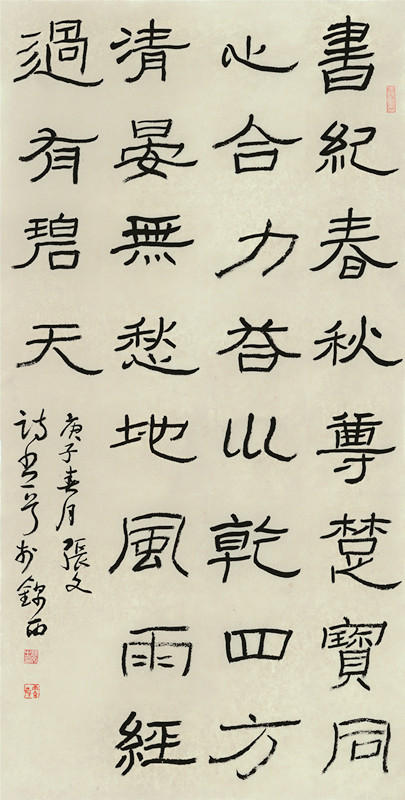 書紀春秋尊楚寶同
心合力川乾四方
清晏無愁地風雨經
過有碧天
庚子春月張文
詩書於錦西